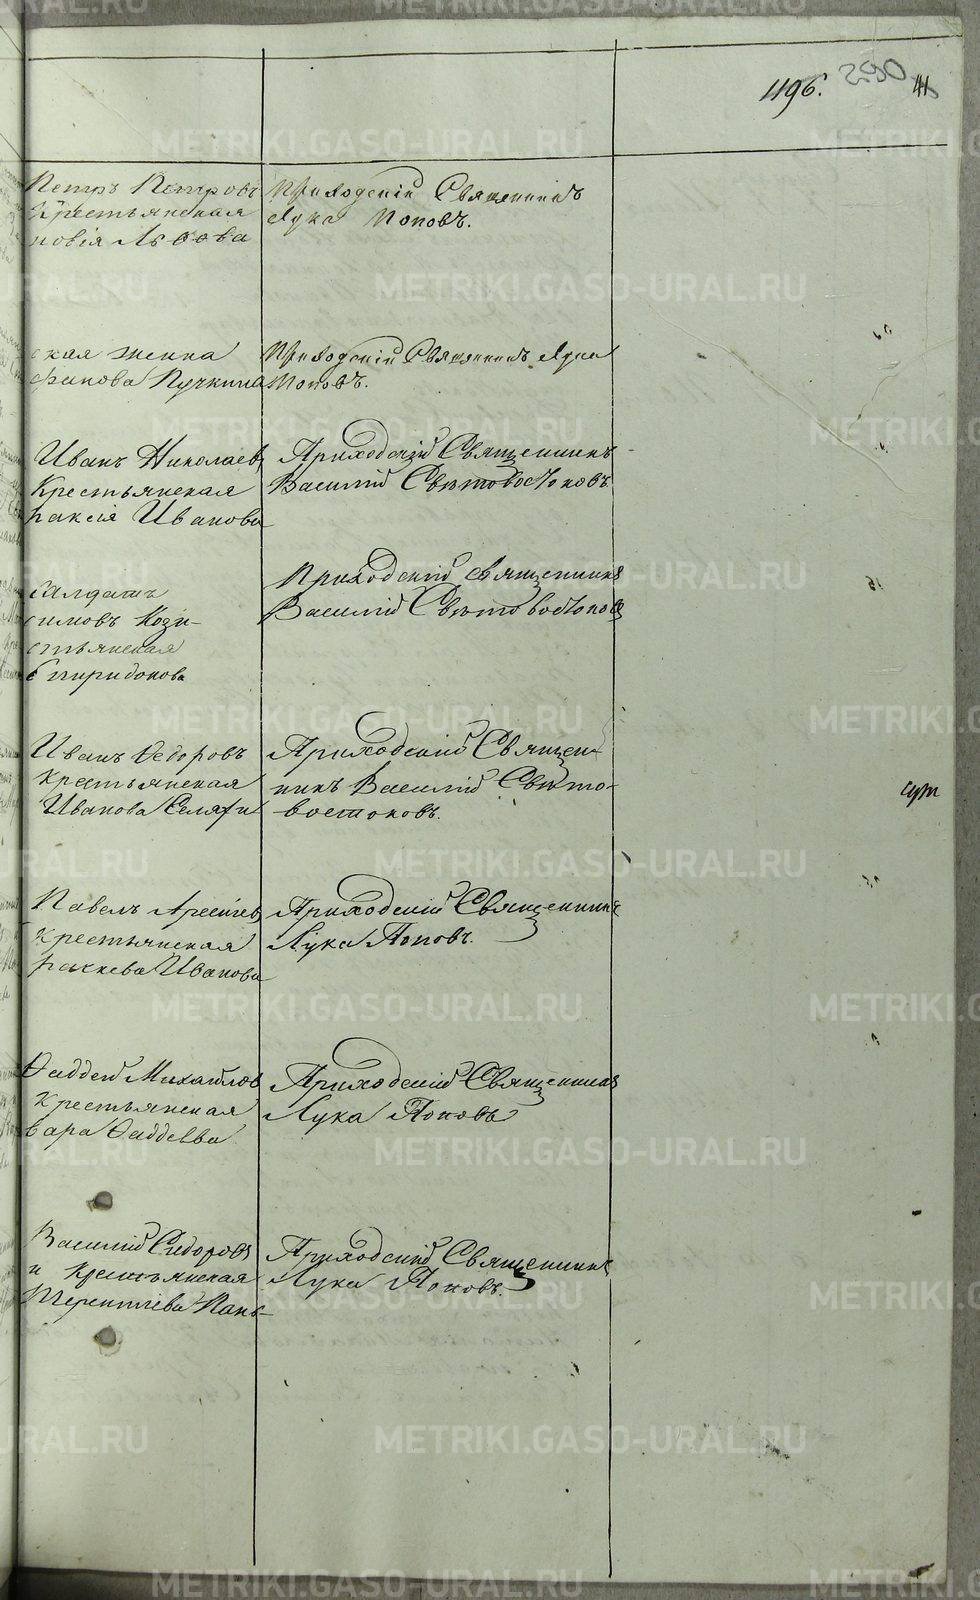 1196.
41
Петръ Петровъ
Крестьянская
новія Львова
Приходскій Священникъ
Лука Поповъ.
ская жена
фанова Пучкина
Приходскій Священникъ Лука
Поповъ.
Иванъ Николаев
Крестьянская
раксія Иванова
Приходскій Священникъ
Василій Свѣтовостоковъ
Салдатъ
симовъ Кози-
стьянская
Спиридонова
Приходскій священникъ
Василій Свѣтовостоковъ
Иванъ Ѳедоровъ
Крестьянская
Иванова Селяги
Приходскій Священ-
никъ Василій Свѣто-
востоковъ.
сум
Павелъ Арсеніев
Крестьянская
Иванова
Приходскій Священникъ
Лука Поповъ.
Ѳаддей Михайлов
Крестьянская
вара Ѳаддеева
Приходскій Священникъ
Лука Поповъ
Василій Сидоровъ
и Крестьянская
Терентіева Пань-
Приходскій Священникъ
Лука Поповъ.
METRIKI.GASO-URAL.RU